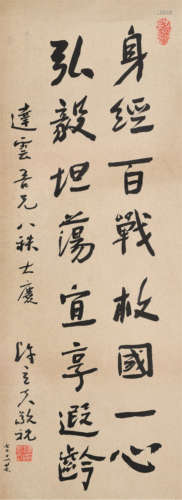 身經百戰救國一心
弘毅坦蕩宜享遐齡
達雲吾兄八秩大慶
許立夫敬祝